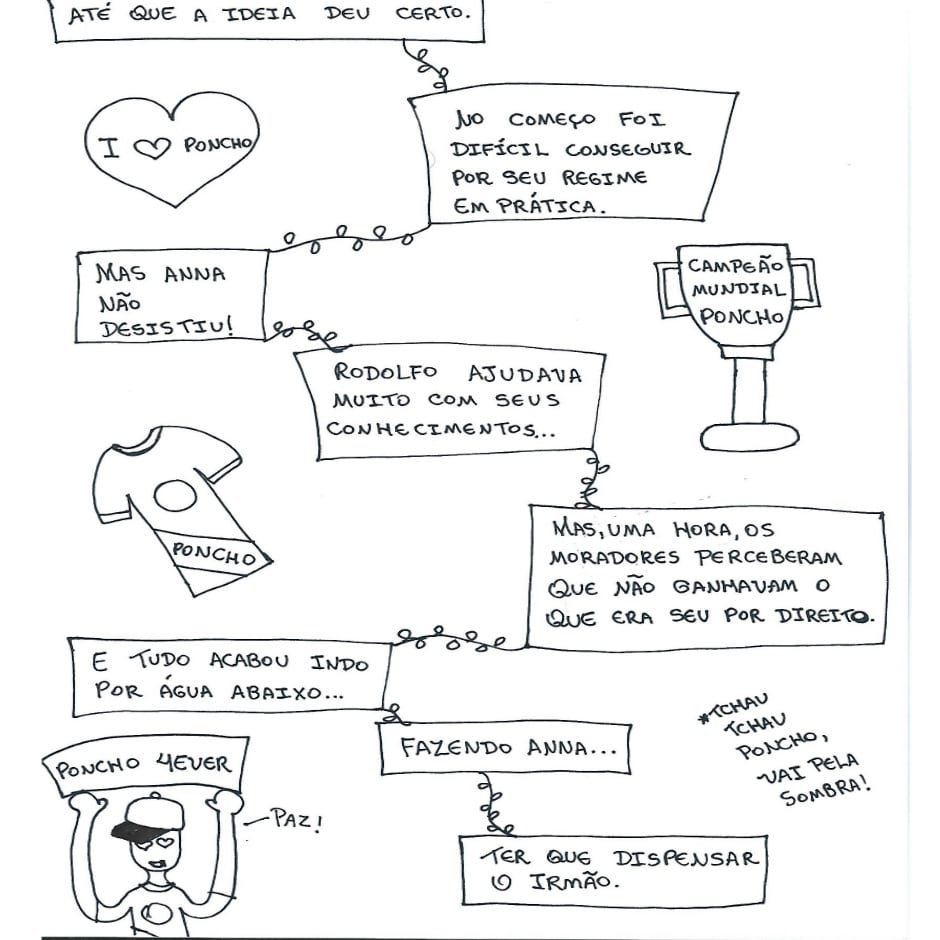 ATÉ QUE A IDEIA DEU CERTO.
I ♡ PONCHO
NO COMEÇO FOI
DIFÍCIL CONSEGUIR
POR SEU REGIME
EM PRÁTICA.
MAS ANNA
NÃO
DESISTIU!
CAMPEÃO
MUNDIAL
PONCHO
RODOLFO AJUDAVA
MUITO COM SEUS
CONHECIMENTOS...
PONCHO
MAS, UMA HORA, OS
MORADORES PERCEBERAM
QUE NÃO GANHAVAM O
QUE ERA SEU POR DIREITO.
E TUDO ACABOU INDO
POR ÁGUA ABAIXO...
FAZENDO ANNA...
*TCHAU
TCHAU
PONCHO,
VAI PELA
SOMBRA!
PONCHO 4EVER
PAZ!
TER QUE DISPENSAR
O IRMÃO.